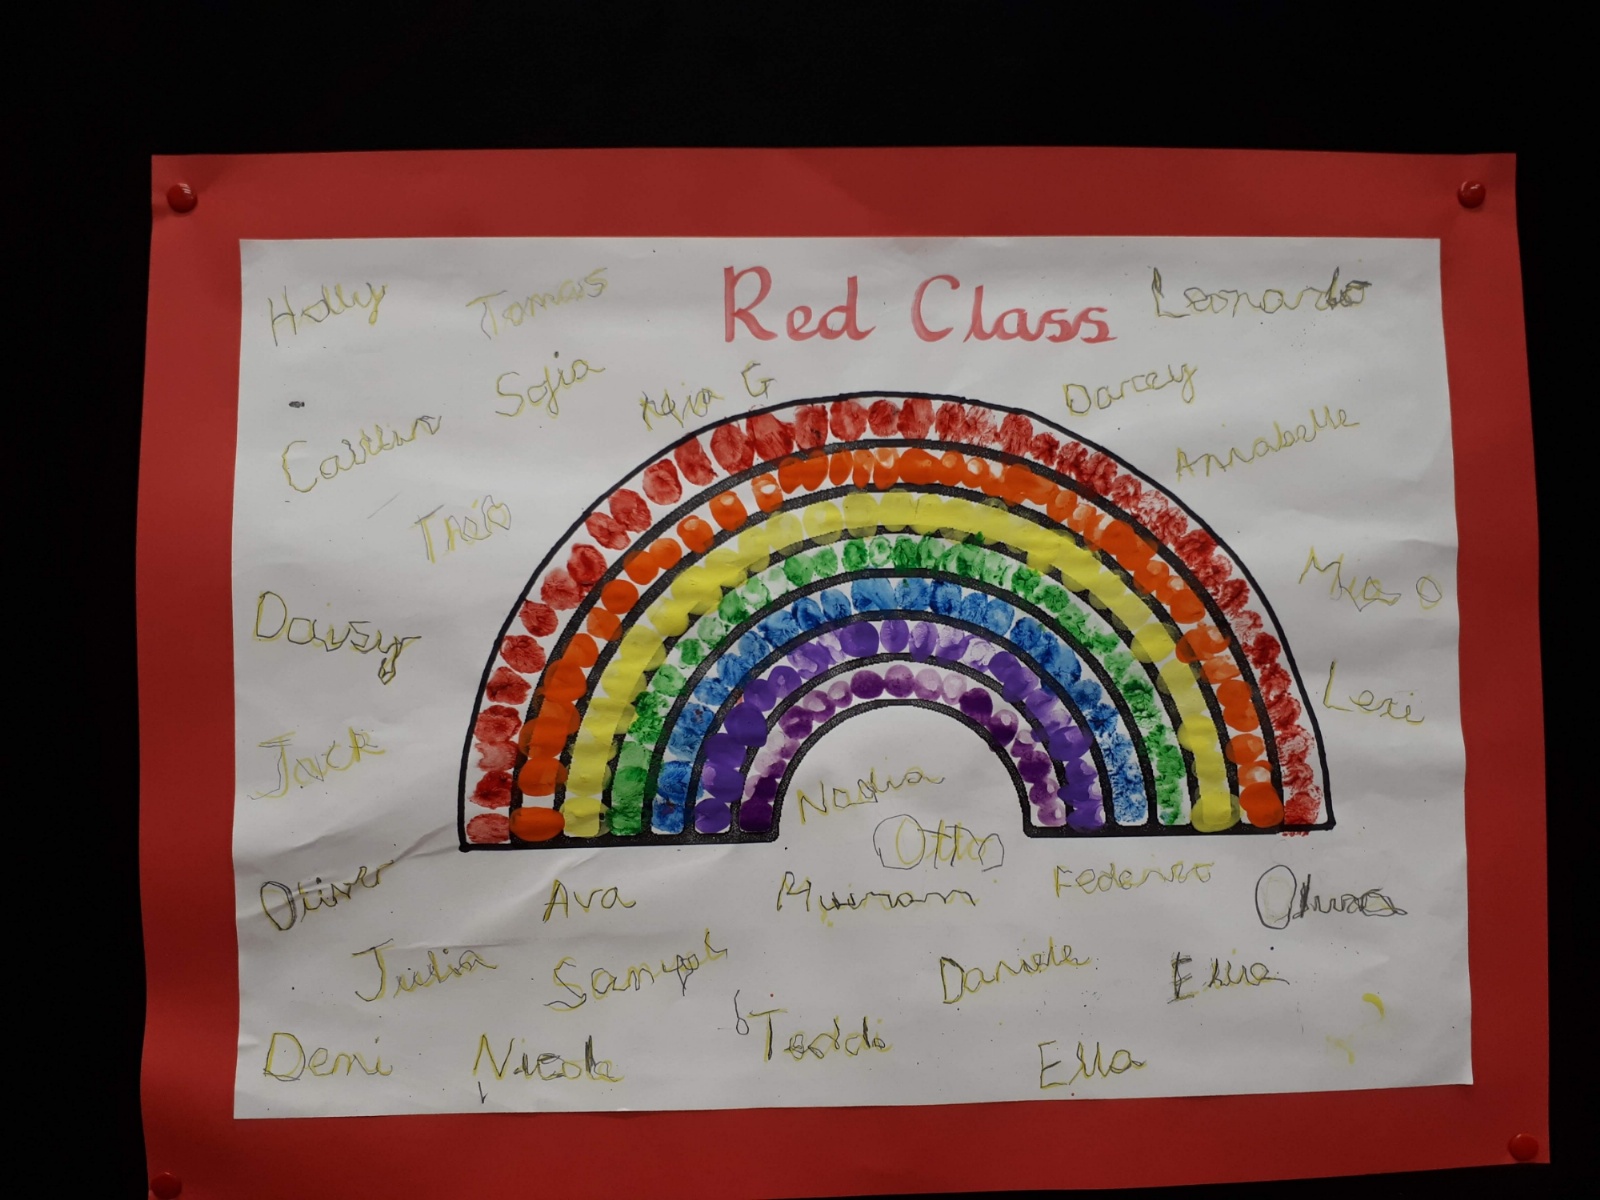 Red Class
Holly
Tomas
Leonardo
Sofia
Mia G
Darcey
Caitlin
Annabelle
Théo
Mia O
Daisy
Lexi
Jack
Nadia
Otto
Oliver
Ava
Federico
Julia
Samuel
Daniele
Demi
Nicole
Teddi
Ella